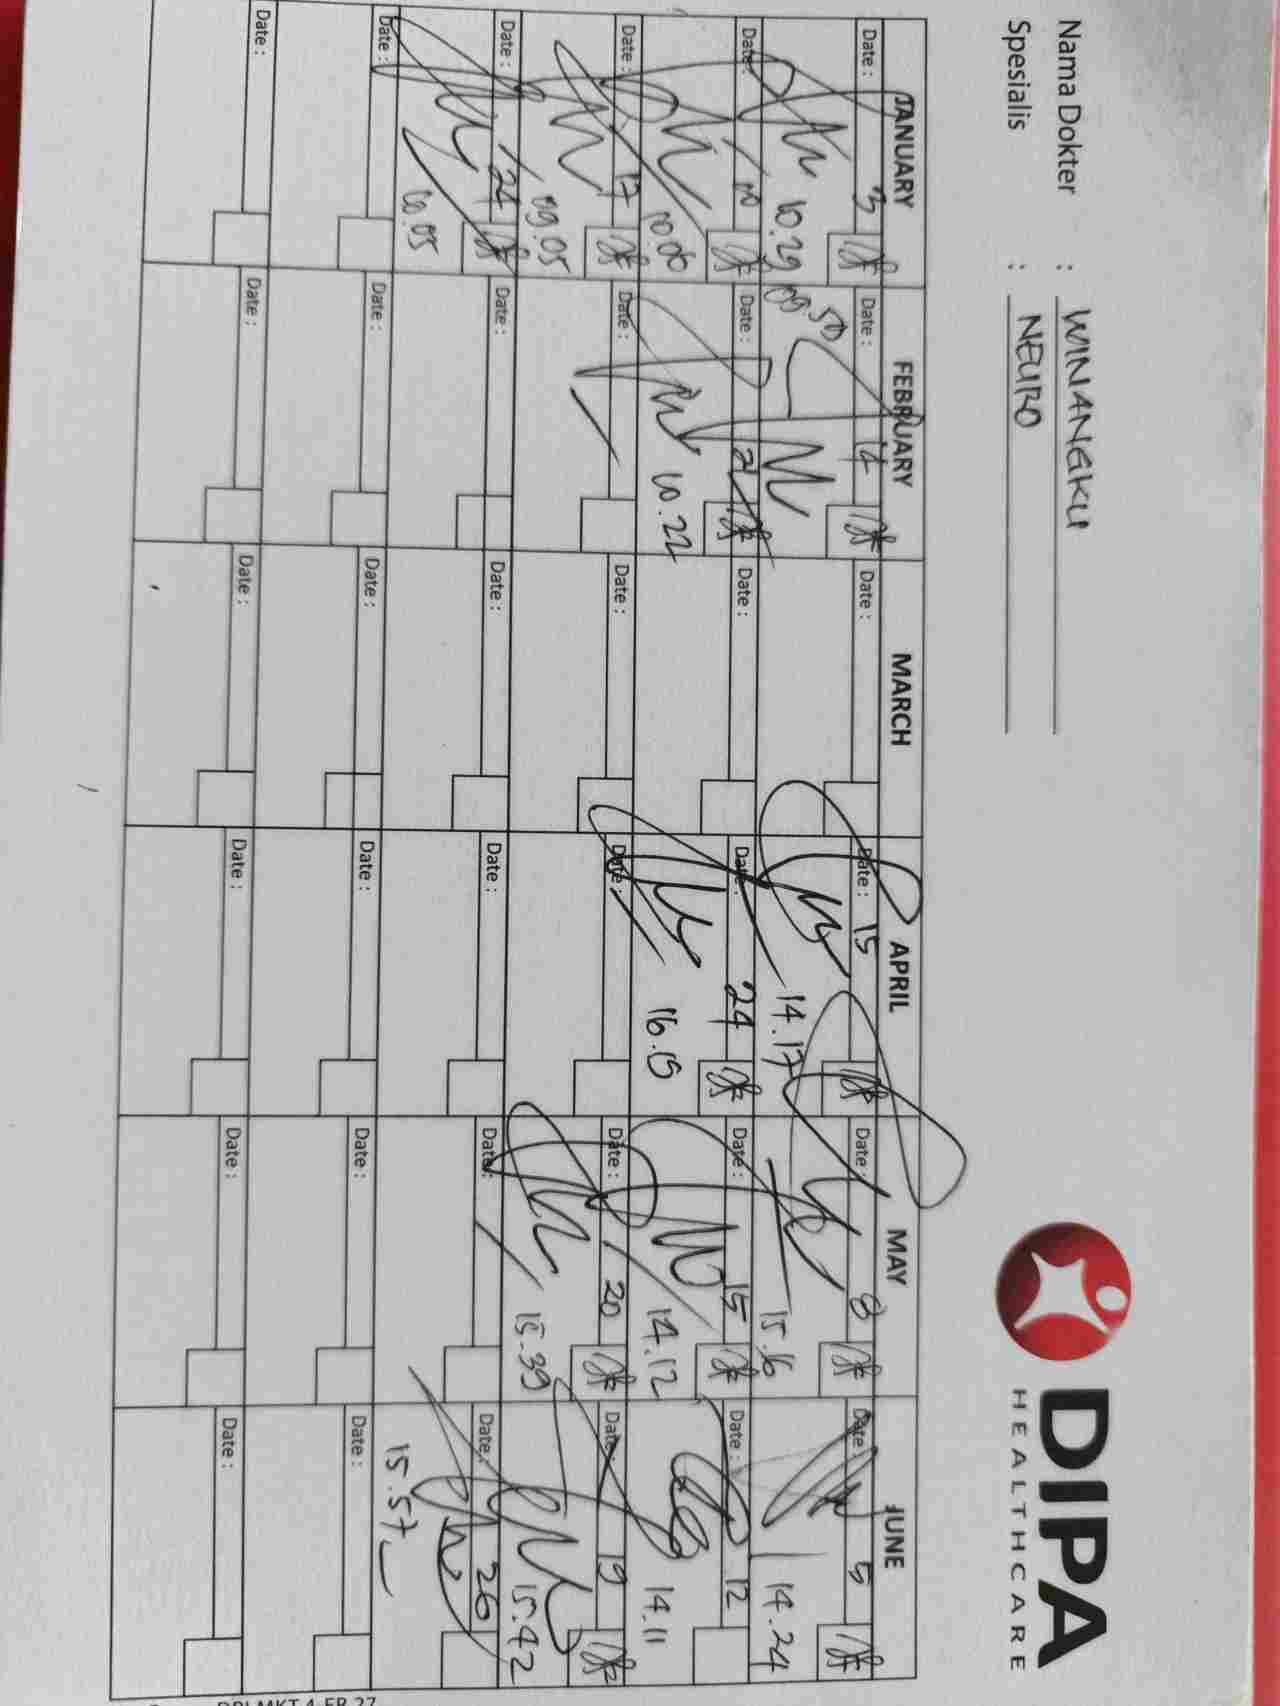 Nama Dokter : WINANGKU
Spesialis : NEURO
DIPA
HEALTHCARE
JANUARY FEBRUARY MARCH APRIL MAY JUNE
Date : 3 Date : 14 Date : Date : 15 Date : 8 Date : 5
10.29 09.50 14.17 15.16 14.24
Date : Date : 21 Date : Date : 24 Date : 15 Date : 12
10.00 10.22 16.15 14.12 14.11
Date : 17 Date : Date : Date : Date : 20 Date : 19
09.05 15.39 15.42
Date : 24 Date : Date : Date : Date : Date : 26
10.05 15.57
Date : Date : Date : Date : Date : Date :
Date : Date : Date : Date : Date : Date :